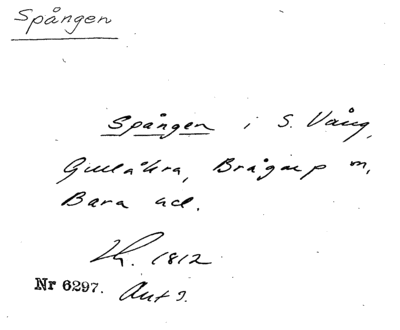 Spången
Spången i S. Vång,
Gullåkra, Brågarp m,
Bara hd.
Lh. 1812
Nr 6297. Akt 3.